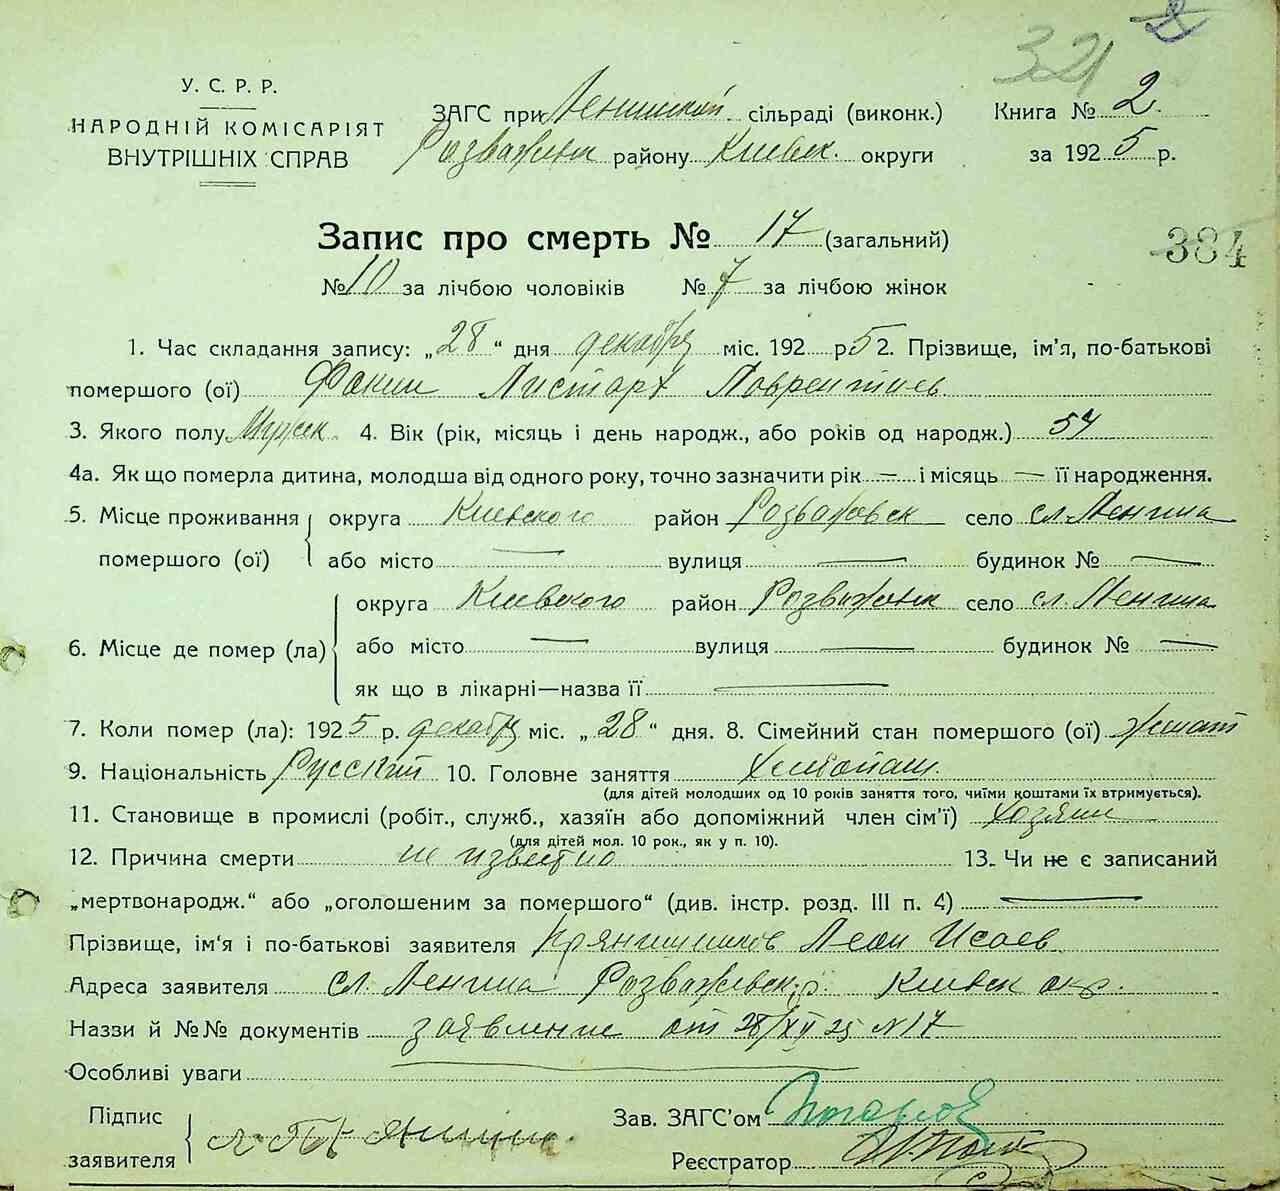 321
У. С. Р. Р.
НАРОДНІЙ КОМІСАРІЯТ
ВНУТРІШНІХ СПРАВ
ЗАГС при Ленинской сільраді (виконк.)
Розважевск району Киевск. округи
Книга № 2.
за 1925 р.
Запис про смерть № 17 (загальний)
384
№ 10 за лічбою чоловіків № 7 за лічбою жінок
1. Час складання запису: „28“ дня декабря міс. 192 р5 2. Прізвище, ім'я, по-батькові
помершого (ої) Фокин Листарх Лаврентиев
3. Якого полу Мужск. 4. Вік (рік, місяць і день народж., або років од народж.) 54
4а. Як що померла дитина, молодша від одного року, точно зазначити рік — і місяць — її народження.
5. Місце проживання помершого (ої) округа Киевского район Розважевск село сл. Ленина
або місто — вулиця — будинок № —
6. Місце де помер (ла) округа Киевского район Розважевск село сл. Ленина
або місто — вулиця — будинок № —
як що в лікарні—назва її —
7. Коли помер (ла): 1925 р. декабря міс. „28“ дня. 8. Сімейний стан помершого (ої) женат
9. Національність Русский 10. Головне заняття Хлебопаш.
(для дітей молодших од 10 років заняття того, чиїми коштами їх втримується).
11. Становище в промислі (робіт., служб., хазяїн або допоміжний член сім'ї) хозяин
(для дітей мол. 10 рок., як у п. 10).
12. Причина смерти не известно 13. Чи не є записаний
„мертвонародж.“ або „оголошеним за помершого“ (див. інстр. розд. III п. 4) —
Прізвище, ім'я і по-батькові заявителя Прянишников Леон Исаев
Адреса заявителя сл. Ленина Розважевск. р. Киевск окр.
Назви й №№ документів заявление от 28/XII 25 N 17
Особливі уваги
Підпис
заявителя
Зав. ЗАГС'ом
Реєстратор